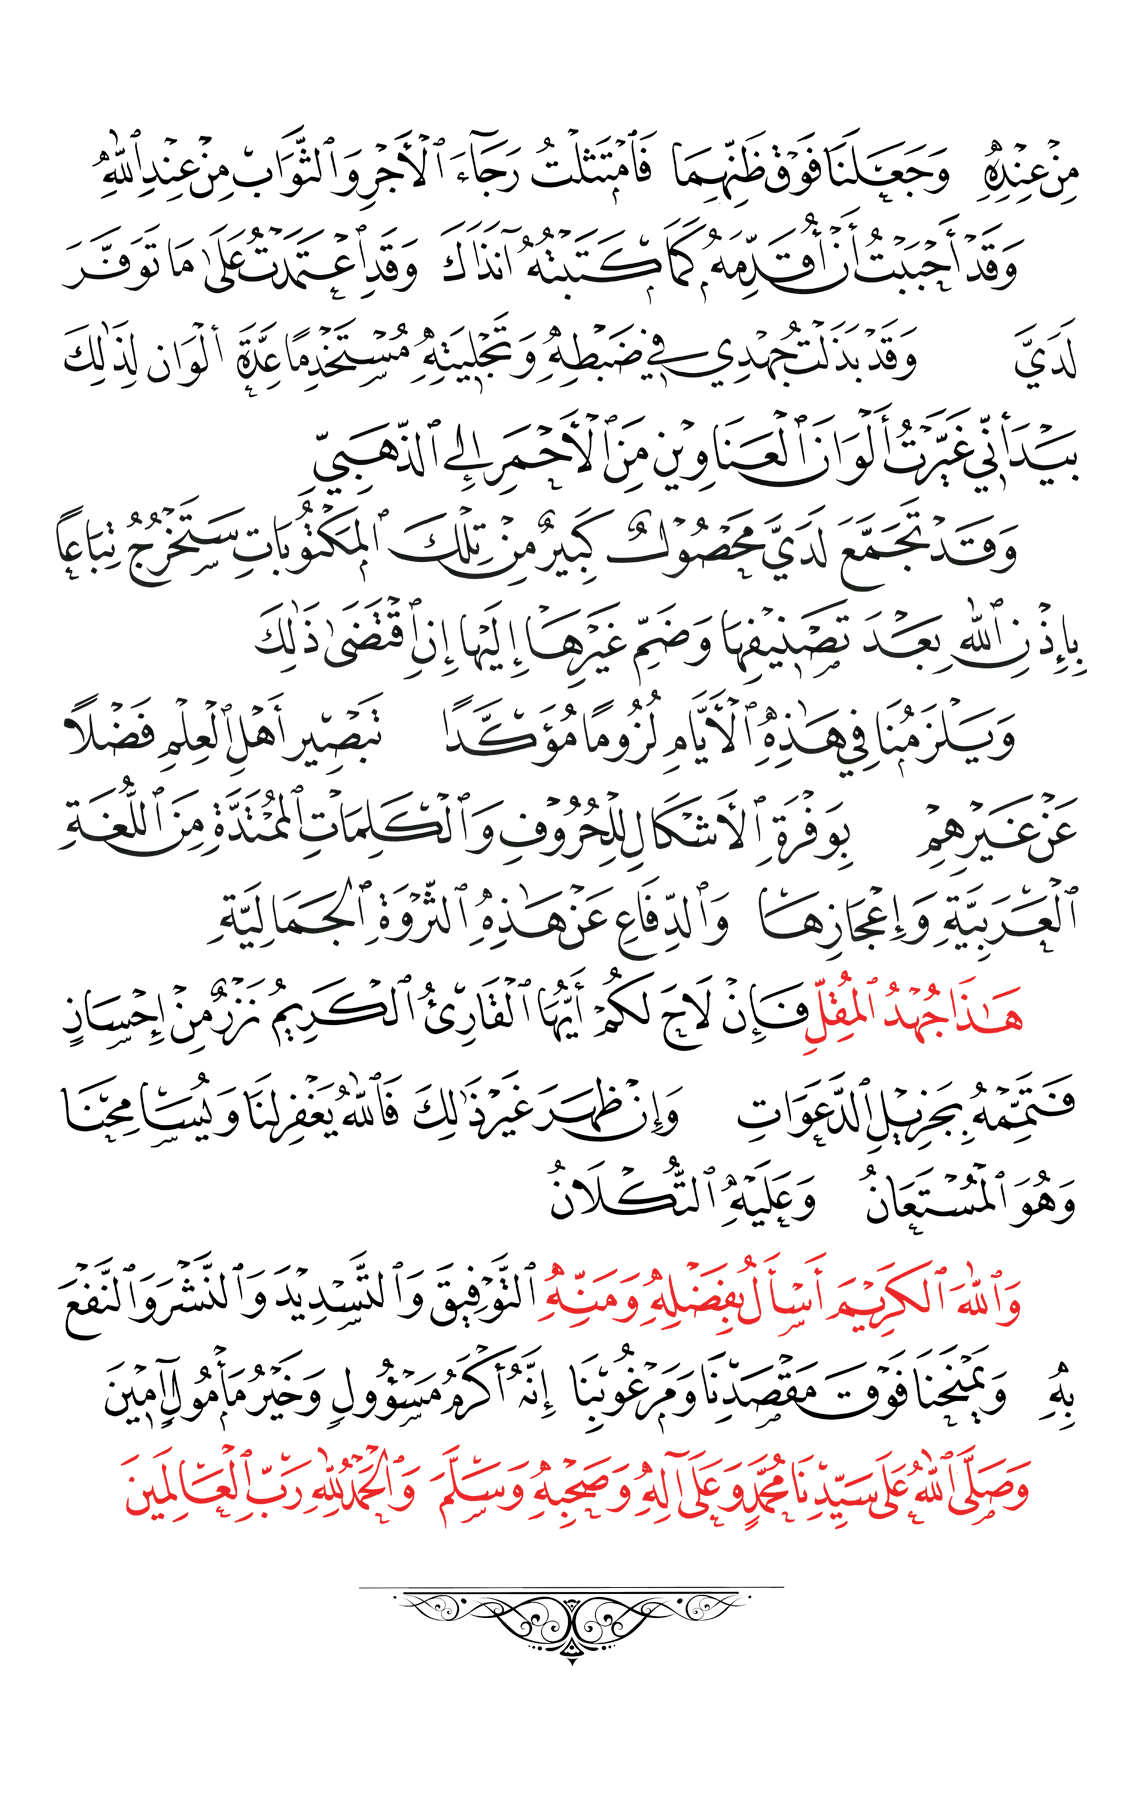 مِنْ عِنْدِهِ وَجَعَلَنَا فَوْقَ ظَنِّهِمَا فَٱمْتَثَلْتُ رَجَآءَ ٱلْأَجْرِ وَٱلثَّوَابِ مِنْ عِنْدِ ٱللّٰهِ
وَقَدْ أَحْبَبْتُ أَنْ أُقَدِّمَهُ كَمَا كَتَبْتُهُ آنَذَاكَ وَقَدِ ٱعْتَمَدْتُ عَلَىٰ مَا تَوَفَّرَ
لَدَيَّ وَقَدْ بَذَلْتُ جُهْدِي فِي ضَبْطِهِ وَتَجْلِيَتِهِ مُسْتَخْدِمًا عِدَّةَ أَلْوَانٍ لِذٰلِكَ
بَيْدَ أَنِّي غَيَّرْتُ أَلْوَانَ ٱلْعَنَاوِيْنِ مِنَ ٱلْأَحْمَرِ إِلَى ٱلذَّهَبِيِّ
وَقَدْ تَجَمَّعَ لَدَيَّ مَحْصُوْلٌ كَبِيرٌ مِنْ تِلْكَ ٱلْمَكْتُوبَاتِ سَتَخْرُجُ تِبَاعًا
بِإِذْنِ ٱللّٰهِ بَعْدَ تَصْنِيْفِهَا وَضَمِّ غَيْرِهَا إِلَيْهَا إِنِ ٱقْتَضَىٰ ذٰلِكَ
وَيَلْزَمُنَا فِي هَـٰذِهِ ٱلْأَيَّامِ لُزُومًا مُؤَكَّدًا تَبْصِيْرُ أَهْلِ ٱلْعِلْمِ فَضْلًا
عَنْ غَيْرِهِمْ بِوَفْرَةِ ٱلْأَشْكَالِ لِلْحُرُوْفِ وَٱلْكَلِمَاتِ ٱلْمُمْتَدَّةِ مِنَ ٱللُّغَةِ
ٱلْعَرَبِيَّةِ وَإِعْجَازِهَا وَٱلدِّفَاعِ عَنْ هَـٰذِهِ ٱلثَّرْوَةِ ٱلْجَمَالِيَّةِ
هَـٰذَا جُهْدُ ٱلْمُقِلِّ فَإِنْ لَاحَ لَكُمْ أَيُّهَا ٱلْقَارِئُ ٱلْكَرِيمُ نَزْرٌ مِنْ إِحْسَانٍ
فَتَمِّمْهُ بِجَزِيْلِ ٱلدَّعَوَاتِ وَإِنْ ظَهَرَ غَيْرُ ذٰلِكَ فَٱللّٰهُ يَغْفِرُ لَنَا وَيُسَامِحُنَا
وَهُوَ ٱلْمُسْتَعَانُ وَعَلَيْهِ ٱلتُّكْلَانُ
وَٱللّٰهَ ٱلْكَرِيْمَ أَسْأَلُ بِفَضْلِهِ وَمَنِّهِ ٱلتَّوْفِيقَ وَٱلتَّسْدِيْدَ وَٱلنَّشْرَ وَٱلنَّفْعَ
بِهِ وَيَمْنَحَنَا فَوْقَ مَقْصَدِنَا وَمَرْغُوْبِنَا إِنَّهُ أَكْرَمُ مَسْؤُولٍ وَخَيْرُ مَأْمُولٍ آمِيْنَ
وَصَلَّى ٱللّٰهُ عَلَى سَيِّدِنَا مُحَمَّدٍ وَعَلَىٰ آلِهِ وَصَحْبِهِ وَسَلَّمَ وَٱلْحَمْدُ لِلّٰهِ رَبِّ ٱلْعَالَمِينَ